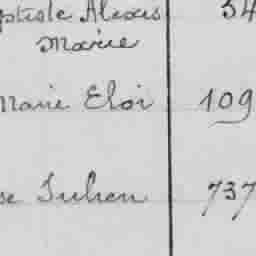 ptiste Alexis 54
Marie
Marie Eloi 109
se Julien 737